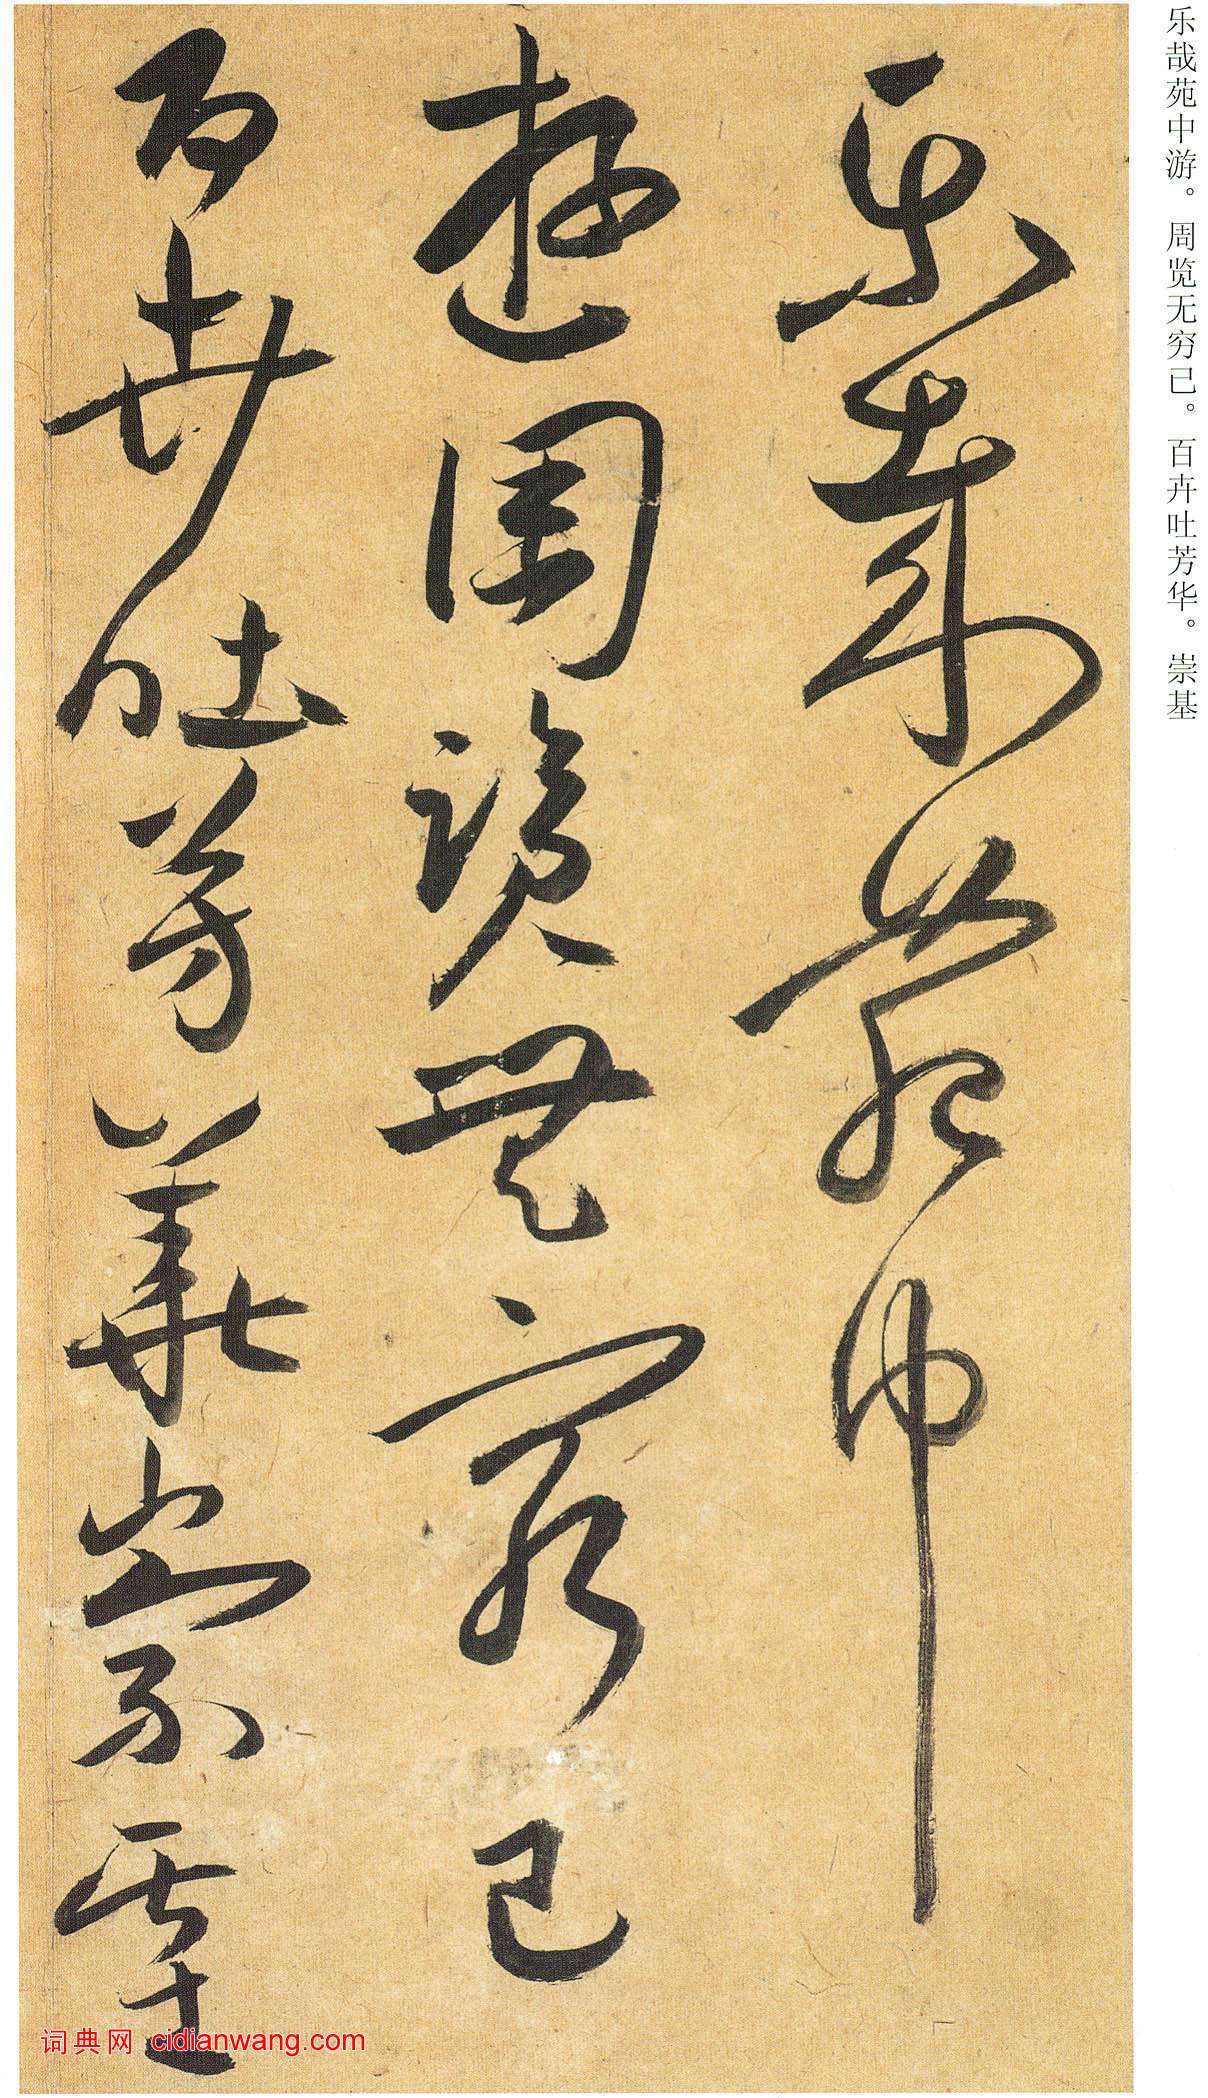 乐哉苑中游。周览无穷已。百卉吐芳华。崇基
樂哉苑中
遊周覽無窮已
百卉吐芳華崇基
词典网 cidianwang.com